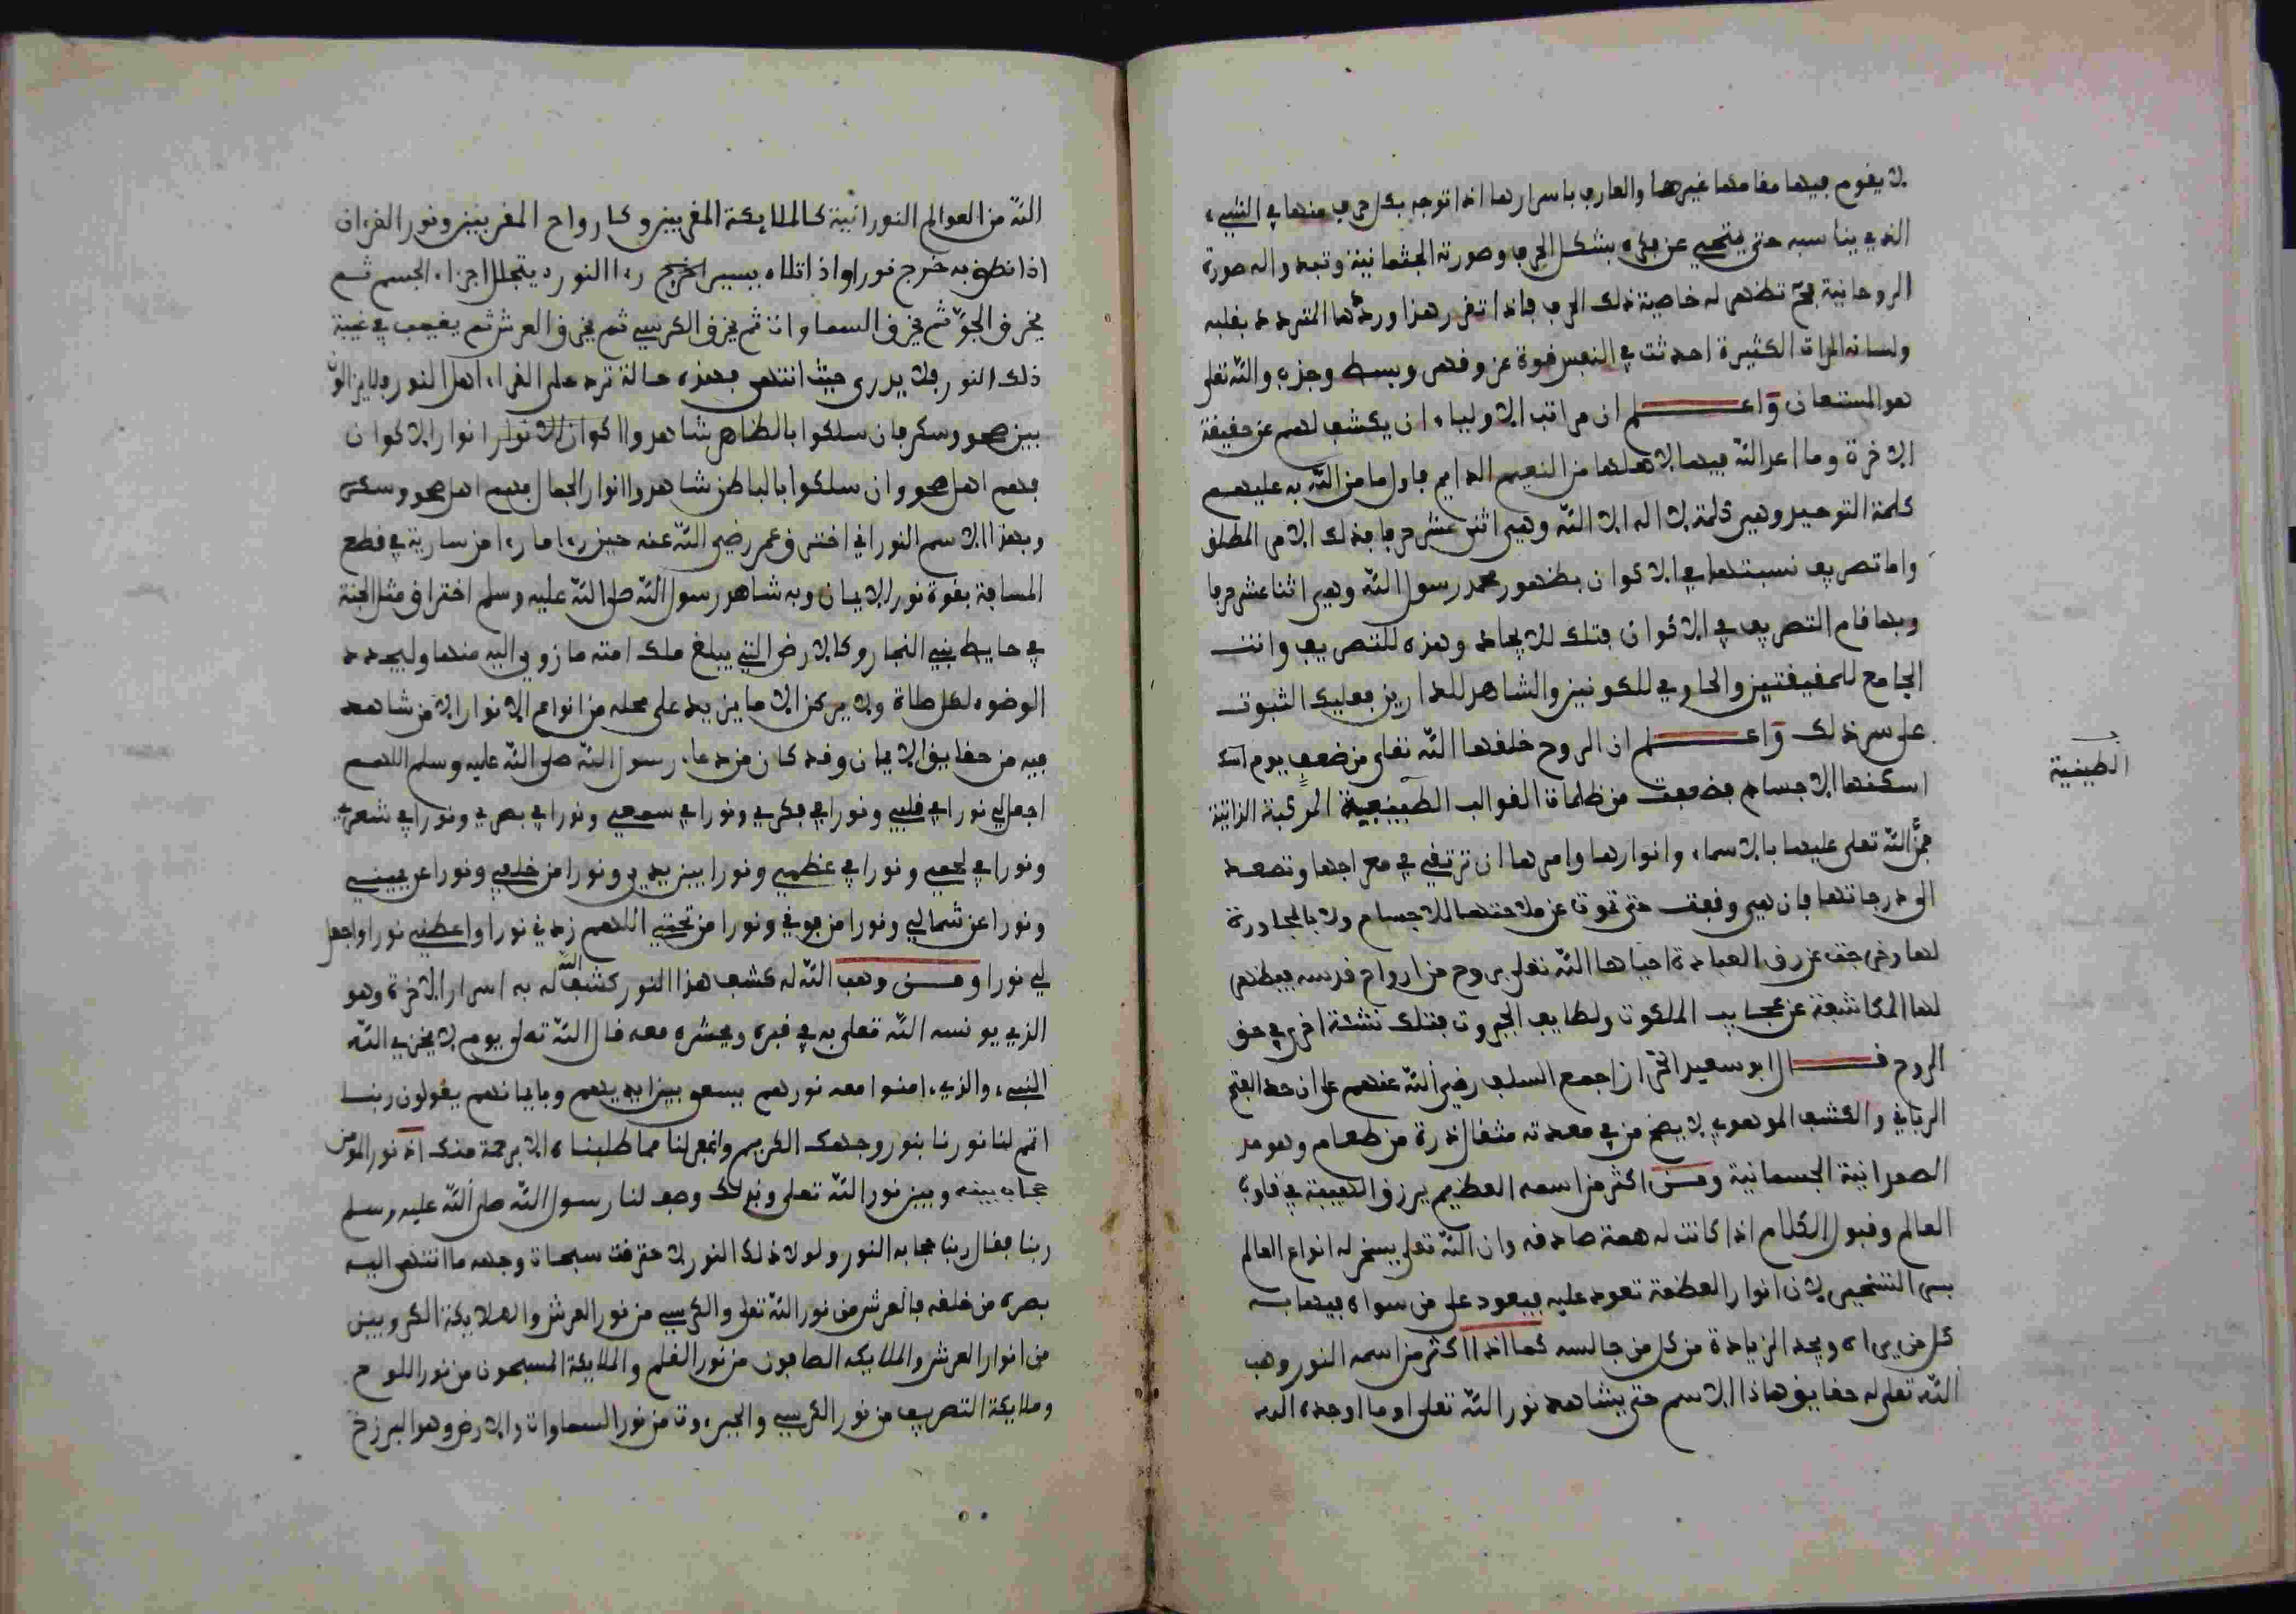 لا يقوم فيها مقامها غيرها والعارف باسرارها اذا توجه بكل حرف منها في الشيء
الذي يناسبه حتى يتحيى عن فكره بشكل الحرف وصورته الجثمانية وتبدوا له صورة
الروحانية تظهر له خاصية ذلك الحرف فاذا تقرر هذا وردها المتردد بقلبه
ولسانه المرات الكثيرة احدثت في النفس قوة عز وقهر وبسط وجذب والله تعلى
هو المستعان واعلم ان مراتب الاولياء ان يكشف لهم عن حقيقة
الاخرة وما اعد الله فيها لاهلها من النعيم الدايم فاول ما من الله به عليهم
كلمة التوحيد وهي كلمة لا اله الا الله وهي اثنى عشر حرفا فذلك الامر المطلق
واما تصريف نسبتها في الاكوان بظهور محمد رسول الله وهي اثنا عشر حرفا
وبها قام التصريف في الاكوان فتلك للايجاد وهذه للتصريف وانت
الجامع للحقيقتين والحاوي للكونين والشاهد للدارين فعليك الثبوت
على سر ذلك واعلم ان الروح خلقها الله تعلى من ضعف يوم
اسكنها الاجسام فضعفت من ظلمات القوالب الطينية المركبة الذاتية
فمن الله تعلى عليها بالاسماء وانوارها وامرها ان ترتقي في معراجها وتصعد
الى درجاتها فان هي وقفت حتى تموت عن ملاحتها للاجسام ولا بالمجاورة
لها وخرجت عن رق العبادة احياها الله تعلى بروح من ارواح قدسه فيظهر
لها المكاشفة عن عجايب الملكوت ولطايف الجبروت فتلك نشئة اخرى في حق
الروح قال ابو سعيد الخراز اجمع السلف رضي الله عنهم على ان حد الفتح
الرباني والكشف الموهوبي لا يصح من في معدته مثقال ذرة من طعام وهو حد
الصمدانية الجسمانية ومن اكثر من اسمه العظيم يرزق الهيبة في قلوب
العالم وقبول الكلام اذا كانت له همة صادقة وان الله تعلى يسخر له انواع العالم
بسر التسخير لان انوار العظمة تعود عليه فيعود على من سواه فيهابه
كل من يراه ويجد الزيادة من كل من جالسه كما اذا اكثر من اسمه النور وهب
الله تعلى له حقايق هاذا الاسم حتى يشاهد نور الله تعلى او ما اوجده الله
الطينية
الله من العوالم النورانية كالملايكة المقربين وكارواح المقربين ونور القرءان
اذا نطق به خرج نورا واذا تلاه بيسير الخرج رءا النور يتجلل اجزاء الجسم ثم
يخرق الجو ثم يخرق السماوات ثم يخرق الكرسي ثم يخرق العرش ثم يغيب في غيبة
ذلك النور فلا يدرى حيث انتهى فهذه حالة ترد على القراء اهل النور فلا يزالون
بين صحو وسكر فان سلكوا بالظاهر شاهدوا اكوان الانوار انوار الاكوان
فهم اهل صحو وان سلكوا بالباطن شاهدوا انوار الجمال فهم اهل صحو وسكر
وبهذا الاسم النوراني اخترق عمر رضي الله عنه حين رءا ما رءا من سارية في قطع
المسافة بقوة نور الايمان وبه شاهد رسول الله صلى الله عليه وسلم اختراق مثل الجنة
في حايط بني النجار وكالارض التي يبلغ ملك امته ما زوي اليه منها وليجدد
الوضوء لكل صلاة ولا يركن الا ما يزيد على محله من انواع الانوار الا من شاهد
فيه من حقايق الايمان وقد كان من دعاء رسول الله صلى الله عليه وسلم اللهم
اجعل لي نورا في قلبي ونورا في فكري ونورا في سمعي ونورا في بصري ونورا في شعري
ونورا في لحمي ونورا في عظمي ونورا بين يدي ونورا من خلفي ونورا عن يميني
ونورا عن شمالي ونورا من فوقي ونورا من تحتي اللهم زدني نورا واعطني نورا واجعل
لي نورا ومن وهب الله له كشف هذا النور كشف الله له به اسرار الاخرة وهو
الذي يونسه الله تعلى به في قبره ويحشره معه قال الله تعلى يوم لا يخزي الله
النبيء والذين ءامنوا معه نورهم يسعى بين ايديهم وبايمانهم يقولون ربنا
اتمم لنا نورنا بنور وجهك الكريم واغفر لنا مما طلبناه الا برحمة منك اذ نور المومن
حجاب بينه وبين نور الله تعلى وبذلك وصف لنا رسول الله صلى الله عليه وسلم
ربنا فقال ربنا حجابه النور ولولا ذلك النور لاحترقت سبحات وجهه ما انتهى اليه
بصره من خلقه فالعرش من نور الله تعلى والكرسي من نور العرش والملايكة الكروبيين
من انوار العرش والملايكة الصافون من نور القلم والملايكة المسبحون من نور اللوح
وملايكة التصريف من نور الكرسي والجبروت من نور السماوات والارض وهو البرزخ